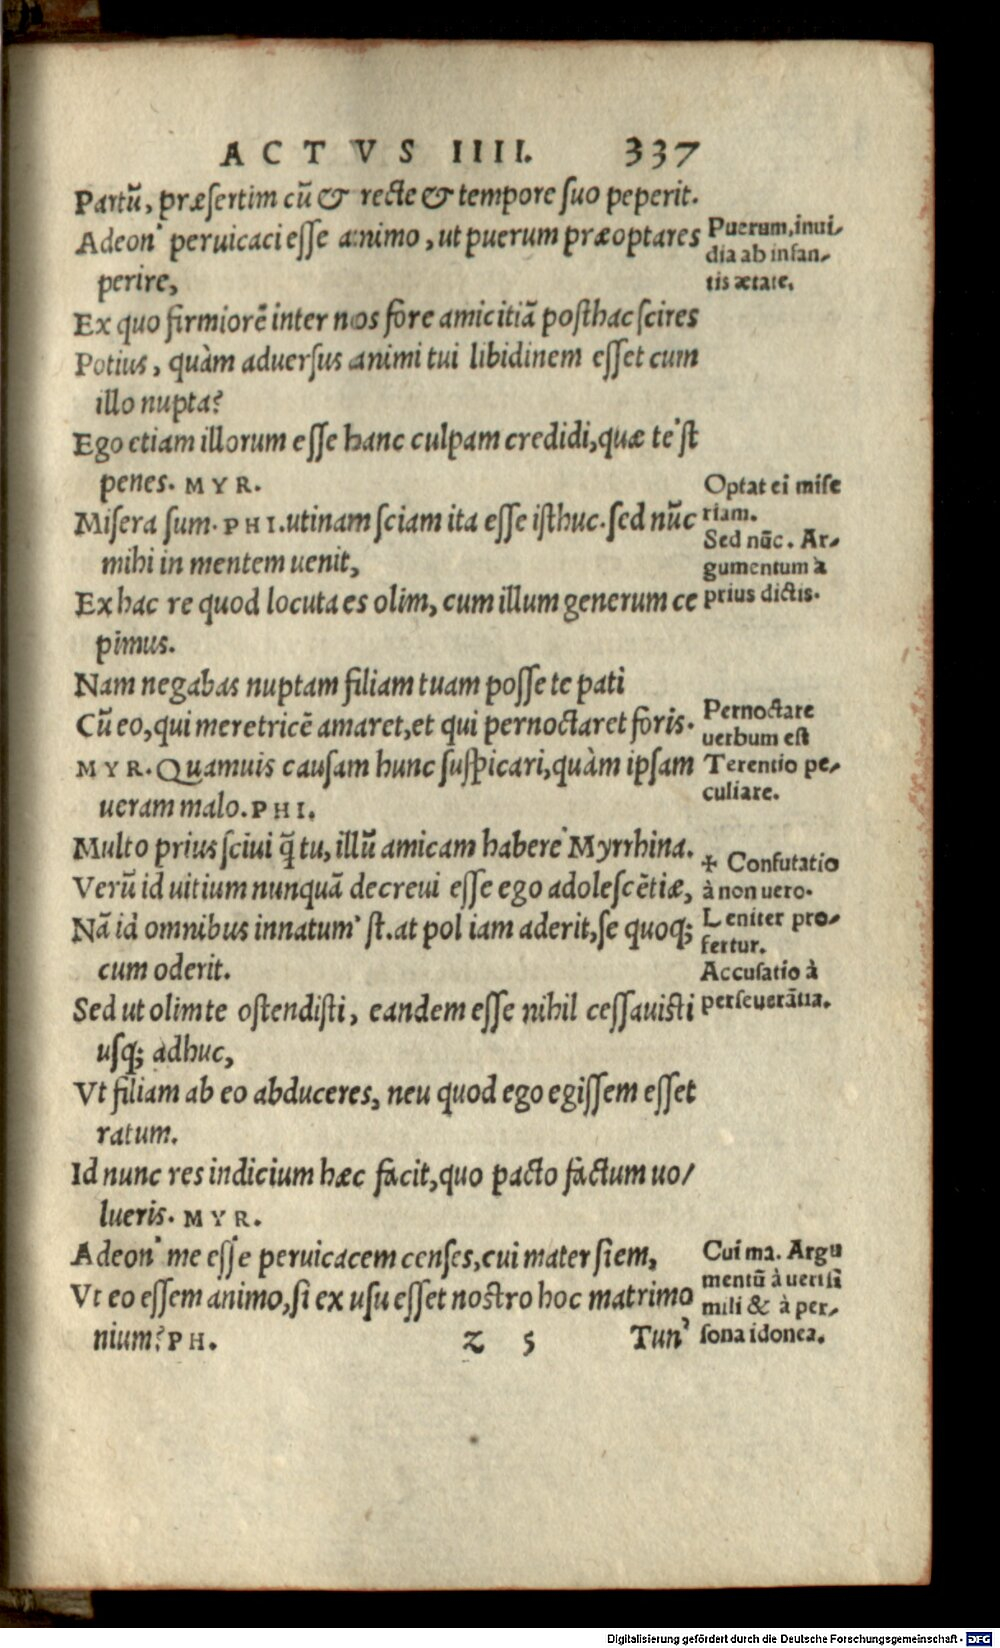 ACTVS IIII. 337
Partū, præsertim cū & recte & tempore suo peperit.
Adeon' peruicaci esse animo, ut puerum præoptares
perire,
Ex quo firmiorē inter nos fore amicitiā posthac scires
Potius, quàm aduersus animi tui libidinem esset cum
illo nupta?
Ego etiam illorum esse hanc culpam credidi, quæ te'st
penes. MYR.
Misera sum. PHI. utinam sciam ita esse isthuc. sed nūc
mihi in mentem uenit,
Ex hac re quod locuta es olim, cum illum generum ce
pimus.
Nam negabas nuptam filiam tuam posse te pati
Cū eo, qui meretricē amaret, et qui pernoctaret foris.
MYR. Quamuis causam hunc suspicari, quàm ipsam
ueram malo. PHI.
Multo prius sciui q̄ tu, illū amicam habere Myrrhina.
Verū id uitium nunquā decreui esse ego adolescētiæ,
Nā id omnibus innatum'st. at pol iam aderit, se quoq;
cum oderit.
Sed ut olim te ostendisti, eandem esse nihil cessauisti
usq; adhuc,
Vt filiam ab eo abduceres, neu quod ego egissem esset
ratum.
Id nunc res indicium hæc facit, quo pacto factum uo/
lueris. MYR.
Adeon' me esse peruicacem censes, cui mater siem,
Vt eo essem animo, si ex usu esset nostro hoc matrimo
nium? PH. Z 5 Tun'
Puerum, inui/
dia ab infan/
tis ætate.
Optat ei mise
riam.
Sed nūc. Ar/
gumentum à
prius dictis.
Pernoctare
uerbum est
Terentio pe/
culiare.
✢ Confutatio
à non uero.
Leniter pro/
fertur.
Accusatio à
perseuerātia.
Cui ma. Argu
mentū à uerisi
mili & à per/
sona idonea.
Digitalisierung gefördert durch die Deutsche Forschungsgemeinschaft - DFG